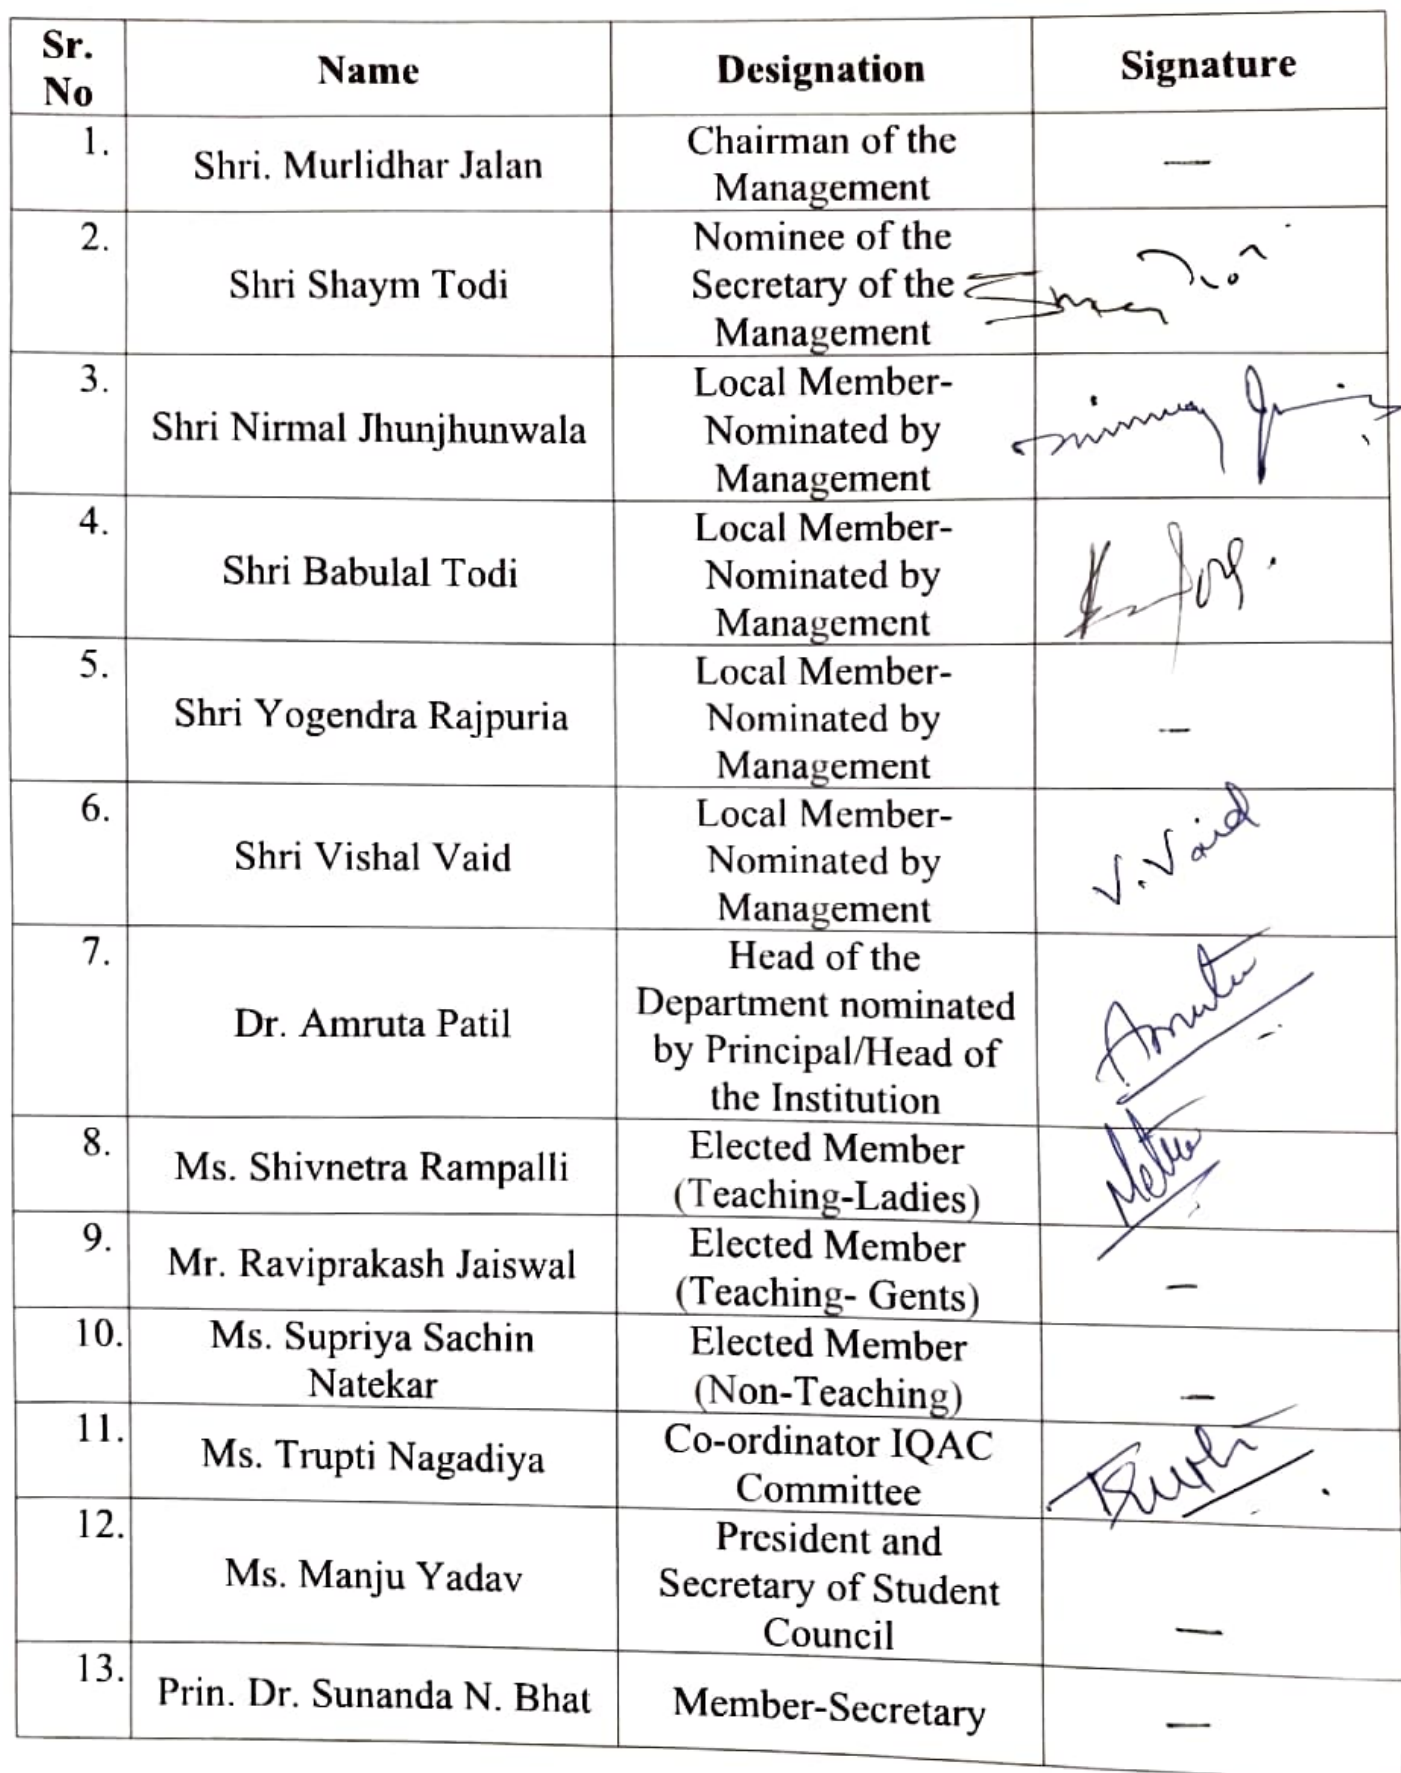 Sr. No	Name	Designation	Signature
1.	Shri. Murlidhar Jalan	Chairman of the
Management	—
2.	Shri Shaym Todi	Nominee of the
Secretary of the
Management
3.	Shri Nirmal Jhunjhunwala	Local Member-
Nominated by
Management
4.	Shri Babulal Todi	Local Member-
Nominated by
Management
5.	Shri Yogendra Rajpuria	Local Member-
Nominated by
Management	—
6.	Shri Vishal Vaid	Local Member-
Nominated by
Management	V. Vaid
7.	Dr. Amruta Patil	Head of the
Department nominated
by Principal/Head of
the Institution	Amruta
8.	Ms. Shivnetra Rampalli	Elected Member
(Teaching-Ladies)
9.	Mr. Raviprakash Jaiswal	Elected Member
(Teaching- Gents)	—
10.	Ms. Supriya Sachin
Natekar	Elected Member
(Non-Teaching)	—
11.	Ms. Trupti Nagadiya	Co-ordinator IQAC
Committee	Trupti
12.	Ms. Manju Yadav	President and
Secretary of Student
Council	—
13.	Prin. Dr. Sunanda N. Bhat	Member-Secretary	—